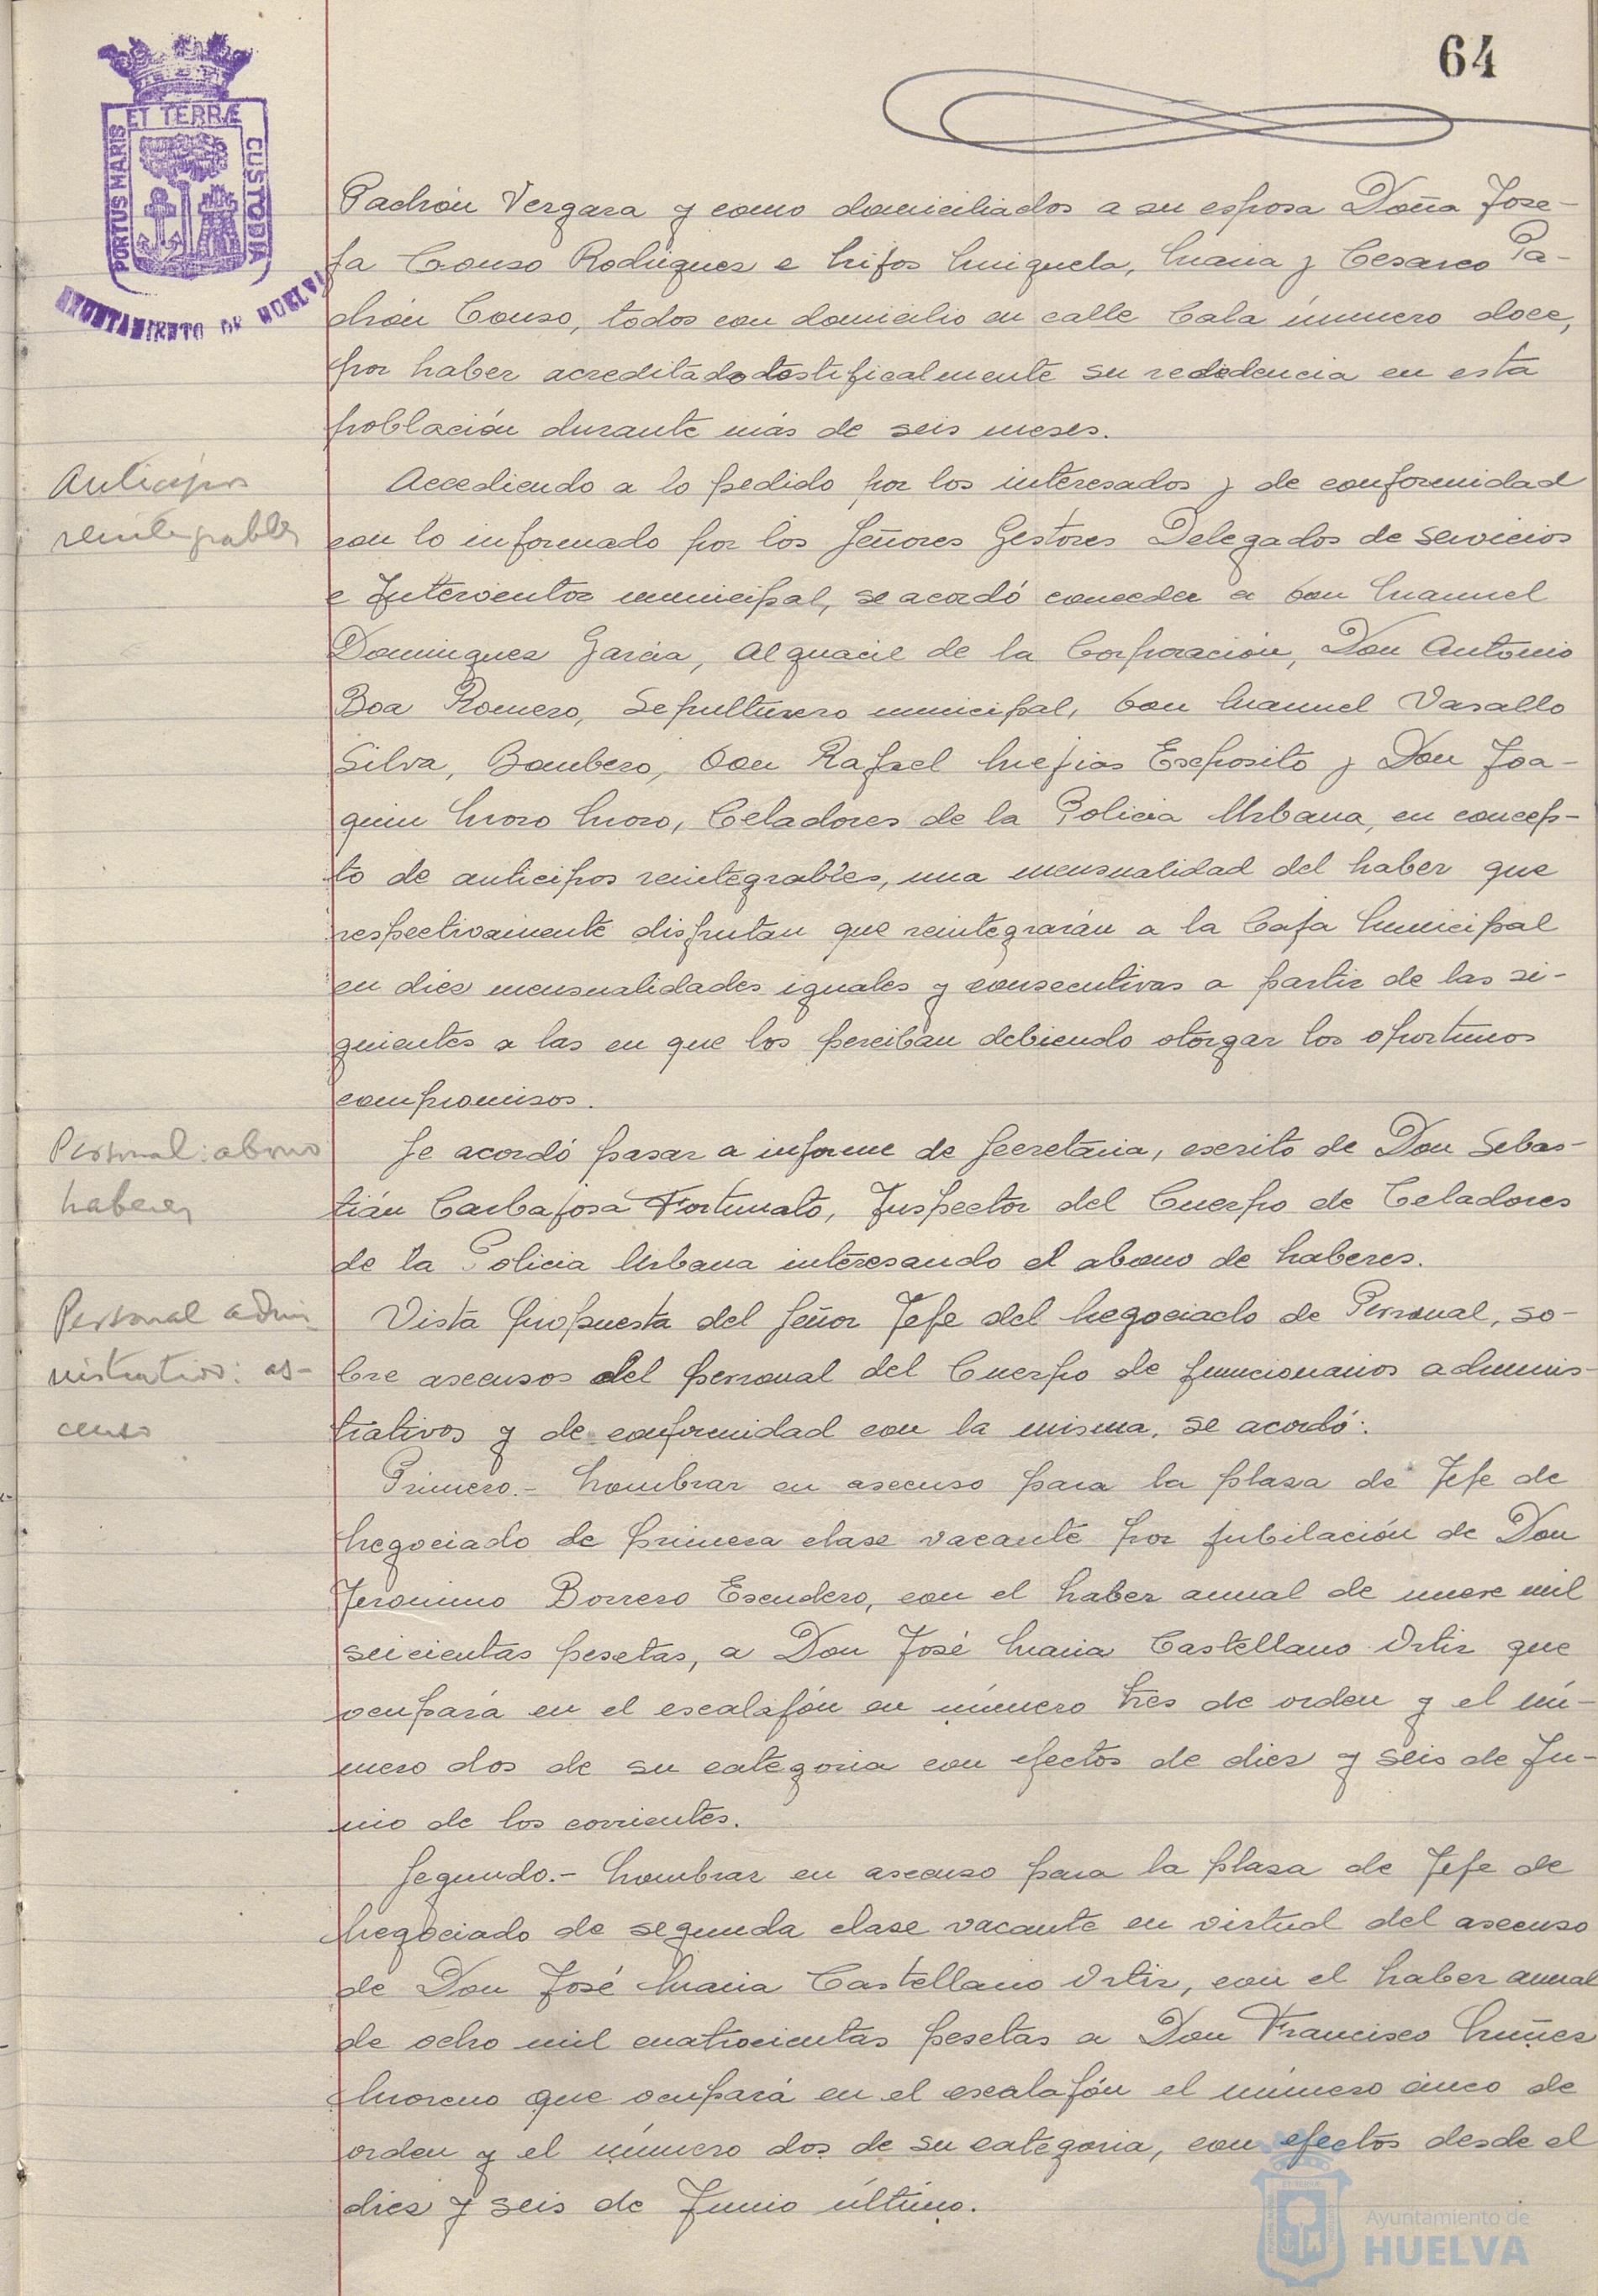 64
ET TERRÆ
PORTUS MARIS
CUSTODIA
AYUNTAMIENTO DE HUELVA
Pachón Vergara y como domiciliados a su esposa Doña Jose-
fa Couso Rodriguez e hijos Miguela, Maria y Cesareo Pa-
chón Couso, todos con domicilio en calle Cala número doce,
por haber acreditado testificalmente su residencia en esta
población durante más de seis meses.
Anticipos
reintegrables
Accediendo a lo pedido por los interesados y de conformidad
con lo informado por los Señores Gestores Delegados de servicios
e Interventor municipal, se acordó conceder a Don Manuel
Dominguez Garcia, Alguacil de la Corporación, Don Antonio
Boa Romero, Sepulturero municipal, Don Manuel Vasallo
Silva, Bombero, Don Rafael Mejias Esposito y Don Joa-
quin Moro Moro, Celadores de la Policia Urbana, en concep-
to de anticipos reintegrables, una mensualidad del haber que
respectivamente disfrutan que reintegrarán a la Caja Municipal
en diez mensualidades iguales y consecutivas a partir de las si-
guientes a las en que los perciban debiendo otorgar los oportunos
compromisos.
Personal: abono
haberes
Se acordó pasar a informe de Secretaria, escrito de Don Sebas-
tián Carbajosa Fortunato, Inspector del Cuerpo de Celadores
de la Policia Urbana interesando el abono de haberes.
Personal admi
nistrativo: as-
censo
Vista propuesta del Señor Jefe del Negociado de Personal, so-
bre ascensos del personal del Cuerpo de funcionarios adminis-
trativos y de conformidad con la misma, se acordó:
Primero.- Nombrar en ascenso para la plaza de Jefe de
Negociado de primera clase vacante por jubilación de Don
Jeronimo Borrero Escudero, con el haber anual de nueve mil
seicientas pesetas, a Don José Maria Castellano Ortiz que
ocupará en el escalafón en número tres de orden y el nú-
mero dos de su categoria con efectos de diez y seis de Ju-
nio de los corrientes.
Segundo.- Nombrar en ascenso para la plaza de Jefe de
Negociado de segunda clase vacante en virtud del ascenso
de Don José Maria Castellano Ortiz, con el haber anual
de ocho mil cuatrocientas pesetas a Don Francisco Nuñez
Moreno que ocupará en el escalafón el número cinco de
orden y el número dos de su categoria, con efectos desde el
diez y seis de Junio último.
Ayuntamiento de
HUELVA